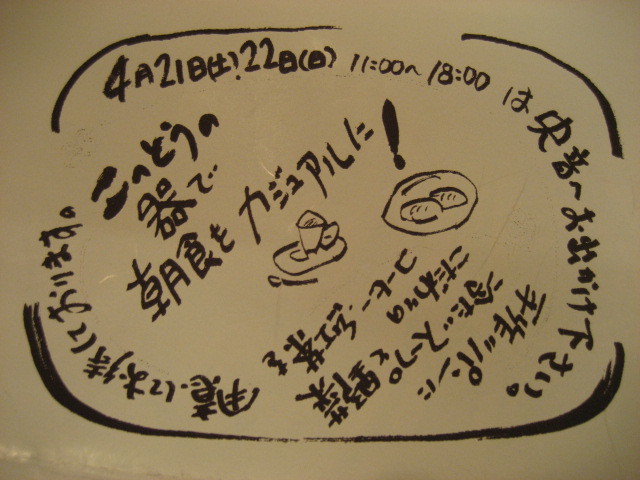 4月21日(土)、22日(日) 11:00〜18:00
は 央音へお出かけ下さい。
こっとうの
器で
朝食を
カジュアルに!
手作りパンに
冷たいスープと野菜
こだわりの
コーヒー、紅茶を
用意してお待ちしております。